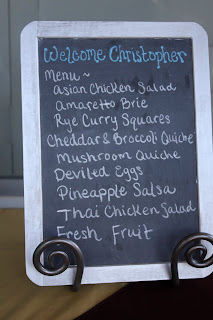 Welcome Christopher
Menu ~
Asian Chicken Salad
amaretto Brie
Rye Curry Squares
Cheddar & Broccoli Quiche
Mushroom Quiche
Devilled Eggs
Pineapple Salsa
Thai Chicken Salad
Fresh Fruit